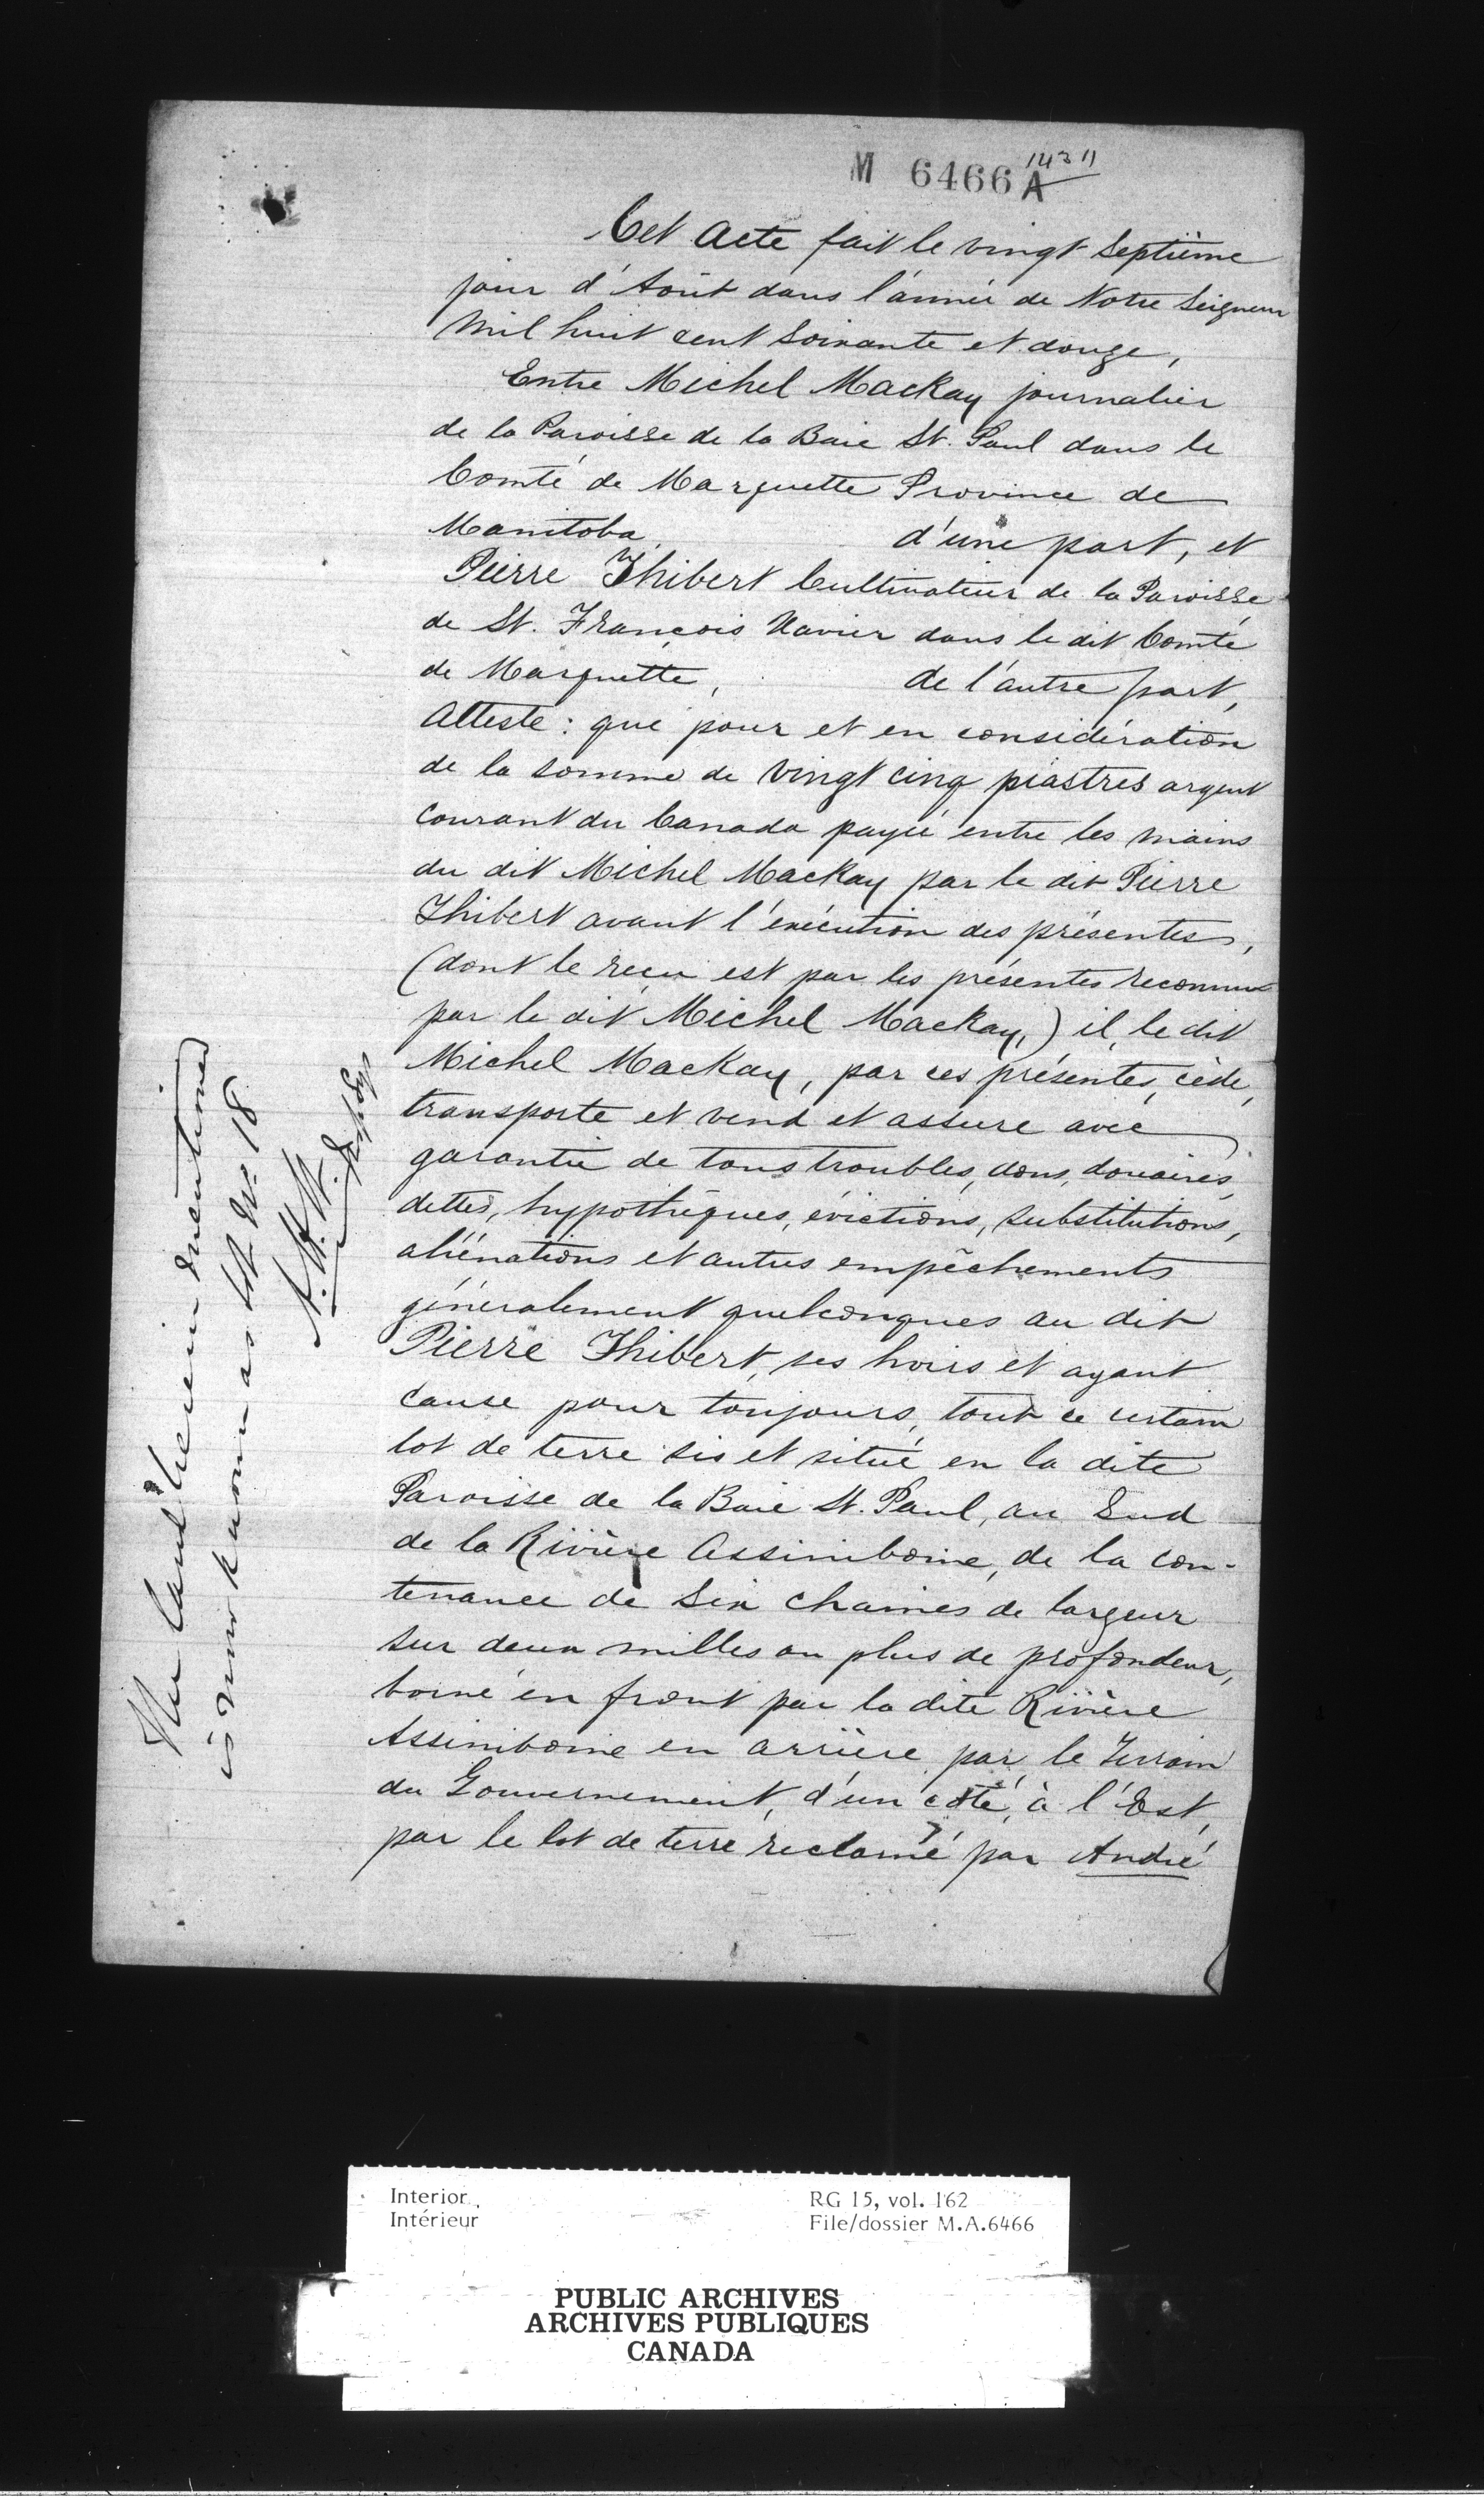 M 6466 A
1431
Cet Acte fait le vingt Septième
jour d'Août dans l'année de Notre Seigneur
Mil huit cent Soixante et douze,
Entre Michel Mackay journalier
de la Paroisse de la Baie St. Paul dans le
Comté de Marquette Province de
Manitoba, d'une part, et
Pierre Thibert Cultivateur de la Paroisse
de St. François Xavier dans le dit Comté
de Marquette, de l'autre part,
Atteste: que pour et en considération
de la somme de Vingt cinq piastres argent
courant du Canada payée entre les mains
du dit Michel Mackay par le dit Pierre
Thibert avant l'exécution des présentes,
(dont le reçu est par les présentes reconnu
par le dit Michel Mackay,) il, le dit
Michel Mackay, par ces présentes, cède,
transporte et vend et assure avec
garantie de tous troubles, dons, douaires,
dettes, hypothèques, évictions, substitutions,
aliénations et autres empêchements
généralement quelconques au dit
Pierre Thibert, ses hoirs et ayant
cause pour toujours, tout ce certain
lot de terre sis et situé en la dite
Paroisse de la Baie St. Paul, au Sud
de la Rivière Assiniboine, de la con-
tenance de Six chaines de largeur
sur deux milles ou plus de profondeur,
borné en front par la dite Rivière
Assiniboine en arrière par le Terrain
du Gouvernement, d'un côté, à l'Est,
par le lot de terre réclamé par André
The land herein mentioned
is now known as lot No. 18
Interior
Intérieur
RG 15, vol. 162
File/dossier M.A.6466
PUBLIC ARCHIVES
ARCHIVES PUBLIQUES
CANADA